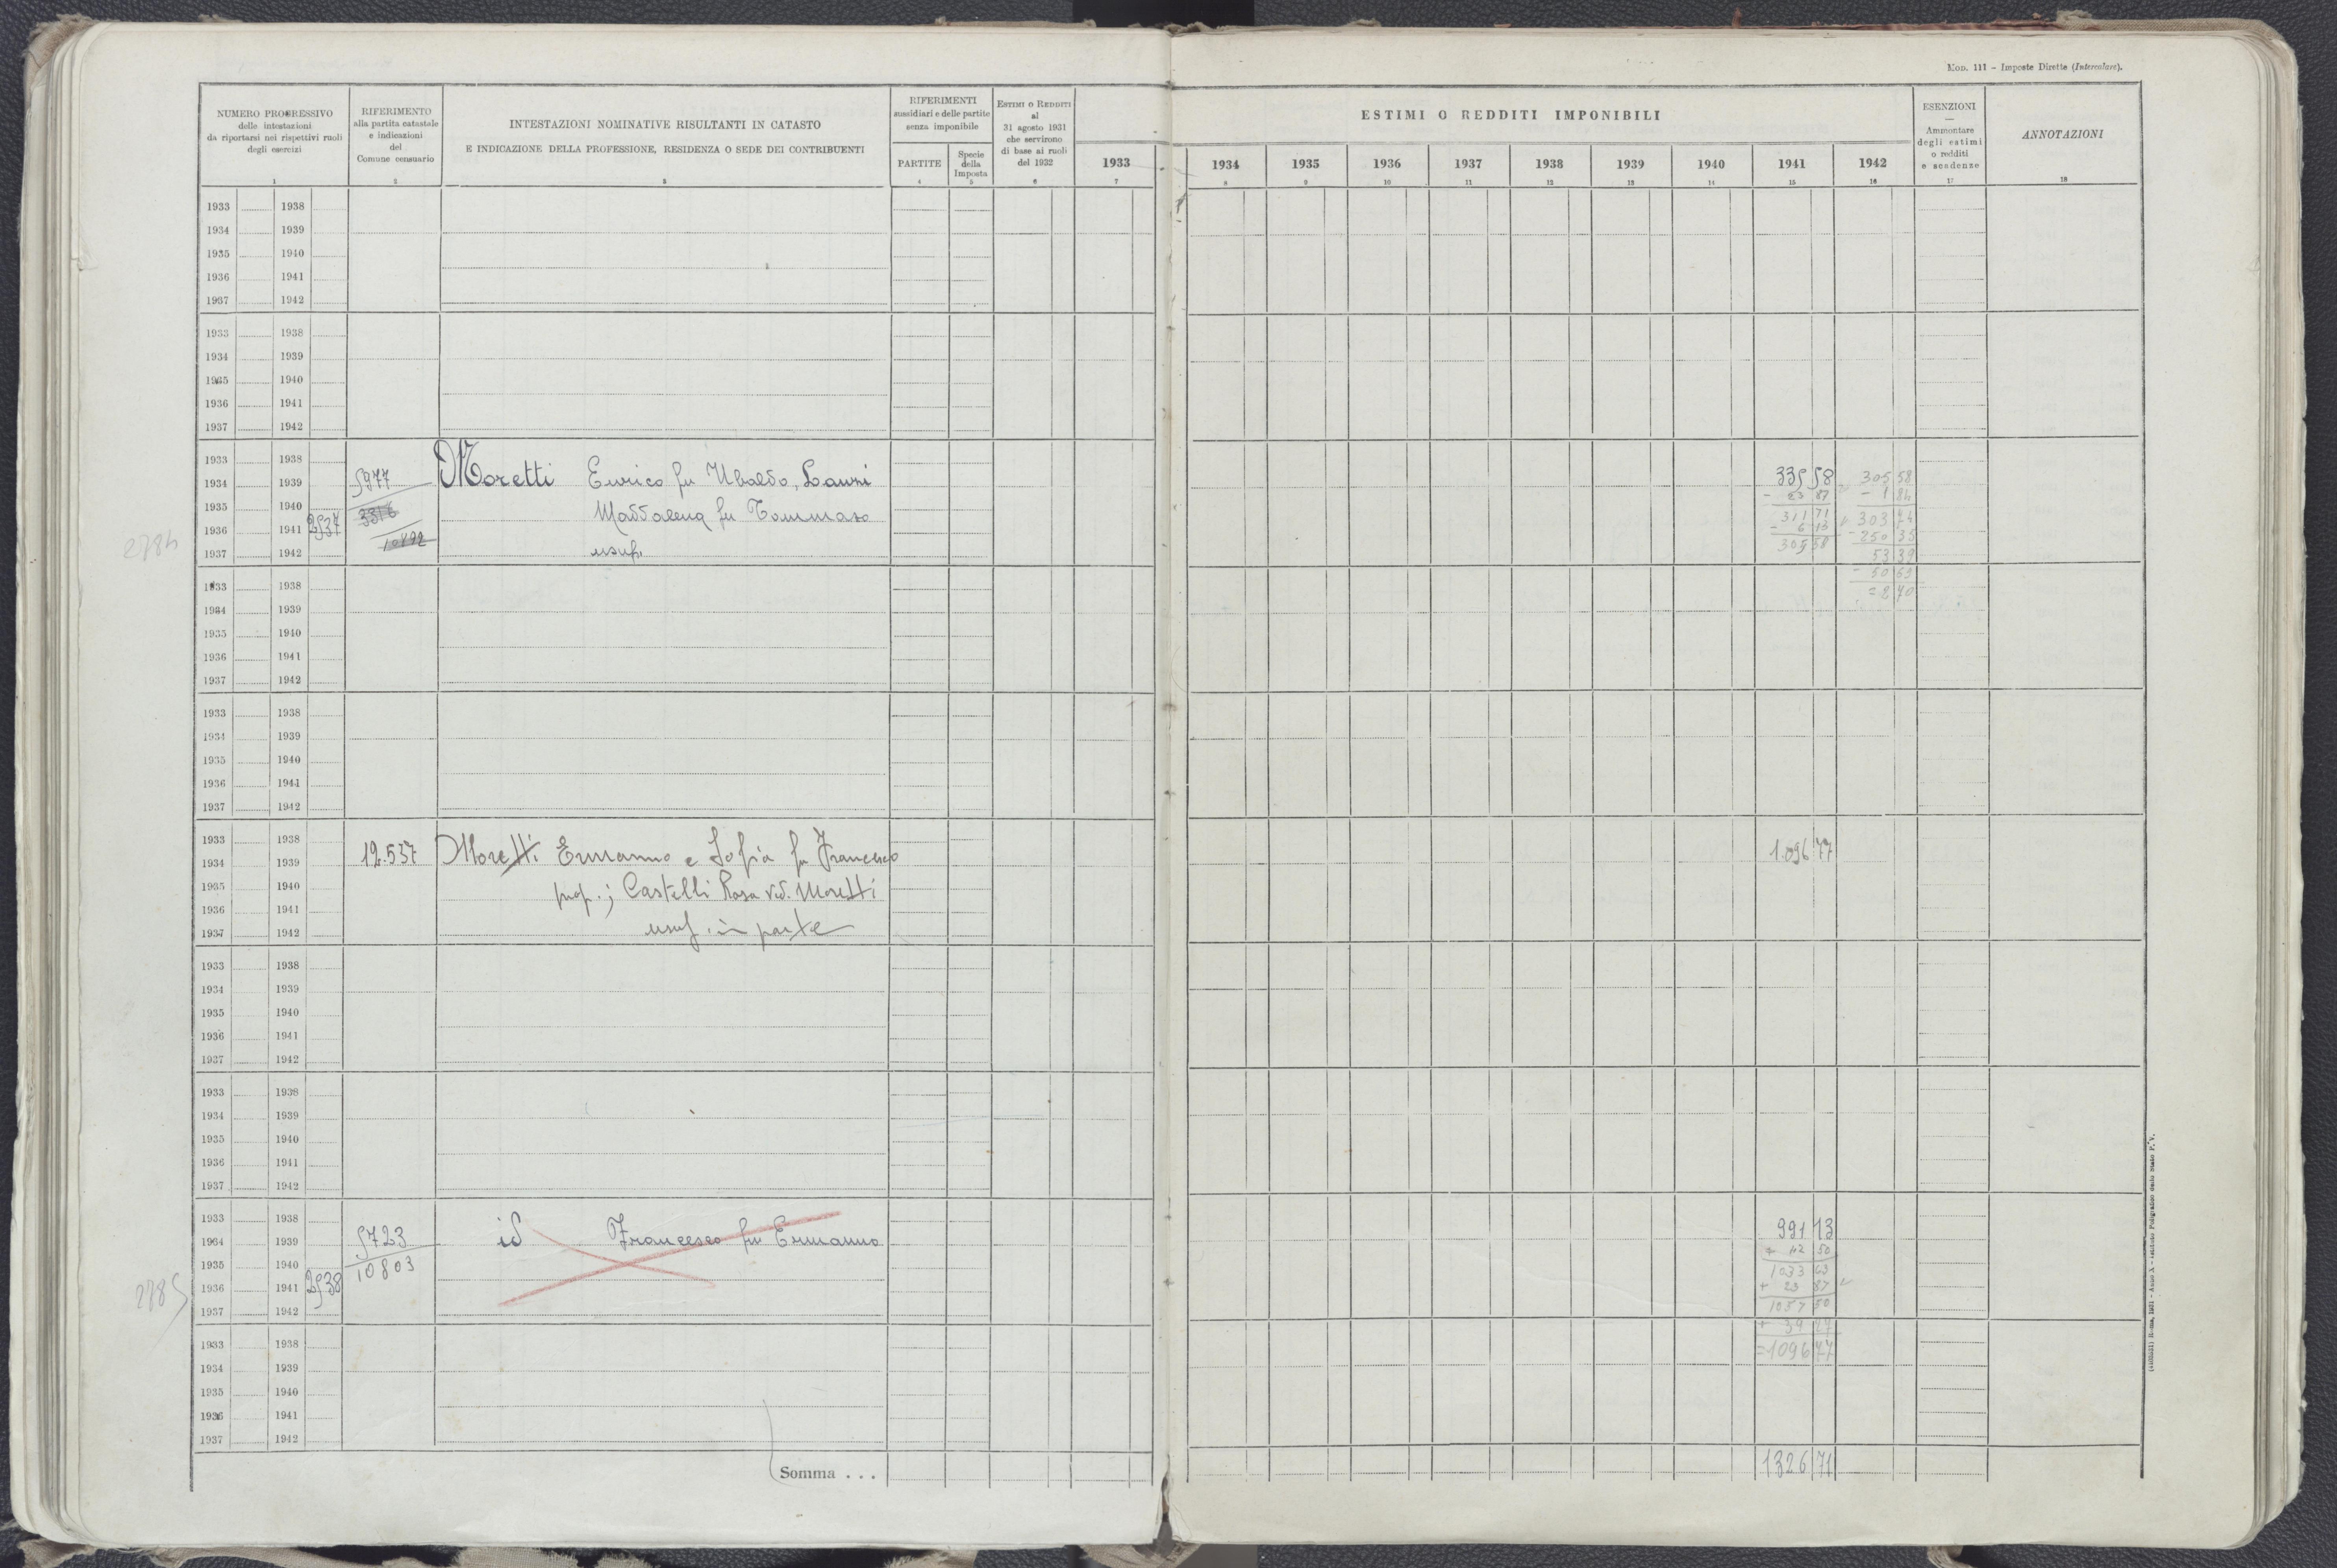 Mod. 111 - Imposte Dirette (Intercalare).
NUMERO PROGRESSIVO
delle intestazioni
da riportarsi nei rispettivi ruoli
degli esercizi
1
RIFERIMENTO
alla partita catastale
e indicazioni
del
Comune censuario
2
INTESTAZIONI NOMINATIVE RISULTANTI IN CATASTO
E INDICAZIONE DELLA PROFESSIONE, RESIDENZA O SEDE DEI CONTRIBUENTI
3
RIFERIMENTI
sussidiari e delle partite
senza imponibile
PARTITE
4
Specie
della
Imposta
5
Estimi o Redditi
al
31 agosto 1931
che servirono
di base ai ruoli
del 1932
6
1933
7
ESTIMI O REDDITI IMPONIBILI
1934 1935 1936 1937 1938 1939 1940 1941 1942
8 9 10 11 12 13 14 15 16
ESENZIONI
—
Ammontare
degli estimi
o redditi
e scadenze
17
ANNOTAZIONI
18
1933 1938
1934 1939
1935 1940
1936 1941
1937 1942
1933 1938
1934 1939
1935 1940
1936 1941
1937 1942
1933 1938
1934 1939 5977 Moretti Enrico fu Ubaldo, Lauzi 335 58 305 58
- 23 87 - 1 84
1935 1940 3316 Maddalena fu Tommaso 311 71 303 74
1936 1941 2537 10892 - 6 13 - 250 35
2784 1937 1942 usuf. 305 58 53 39
1933 1938 - 50 69
1934 1939 = 2 70
1935 1940
1936 1941
1937 1942
1933 1938
1934 1939
1935 1940
1936 1941
1937 1942
1933 1938
1934 1939 12.537 Moretti Ermanno e Sofia fu Francesco 1.096 77
1935 1940 prop.; Castelli Rosa ved. Moretti
1936 1941
1937 1942 usuf. in parte
1933 1938
1934 1939
1935 1940
1936 1941
1937 1942
1933 1938
1934 1939
1935 1940
1936 1941
1937 1942
1933 1938 991 13
1934 1939 5723 id Francesco fu Ermanno + 42 50
1935 1940 10803 1033 63
2785 1936 1941 2538 + 23 87
1937 1942 1057 50
1933 1938 + 39 27
1934 1939 = 1096 77
1935 1940
1936 1941
1937 1942
Somma . . . 1326 71